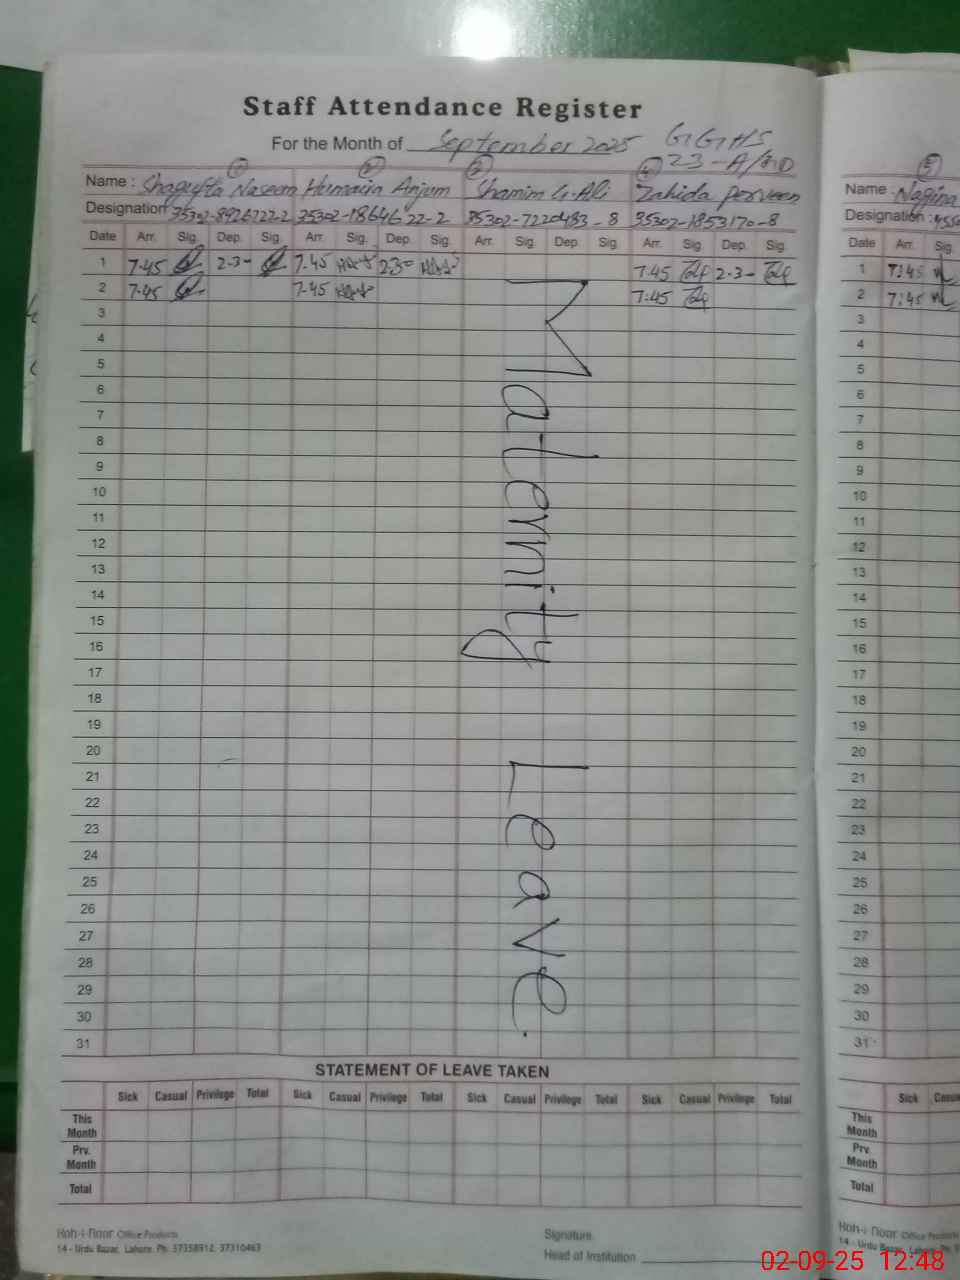 Staff Attendance Register
For the Month of September 2025 GGHS
23-A/
Name : Shagufta Naseem Humaira Anjum Shamim G. Ali Zahida Perveen
Designation 35302-8926722-2 35302-1864622-2 35302-7220483-8 35302-1853170-8
Date Arr. Sig. Dep. Sig. Arr. Sig. Dep. Sig. Arr. Sig. Dep. Sig. Arr. Sig. Dep. Sig.
1 7.45 2-3- 7.45 2.3- 7.45 2.3-
2 7.45 7.45 7:45
3
4
5
6
7
8
9
10
11
12
13
14
15
16
17
18
19
20
21
22
23
24
25
26
27
28
29
30
31
Maternity Leave.
STATEMENT OF LEAVE TAKEN
Sick Casual Privilege Total Sick Casual Privilege Total Sick Casual Privilege Total Sick Casual Privilege Total
This
Month
Prv.
Month
Total
Koh-i-Noor Office Products
14 - Urdu Bazar, Lahore. Ph: 37358912, 37310463
Signature
Head of Institution
5
Name : Nagina
Designation :
Date Arr. Sig.
1 7:45
2 7:45
3
4
5
6
7
8
9
10
11
12
13
14
15
16
17
18
19
20
21
22
23
24
25
26
27
28
29
30
31
Sick
This
Month
Prv.
Month
Total
Koh-i-Noor Office Products
14 - Urdu Bazar, Lahore. Ph:
02-09-25 12:48